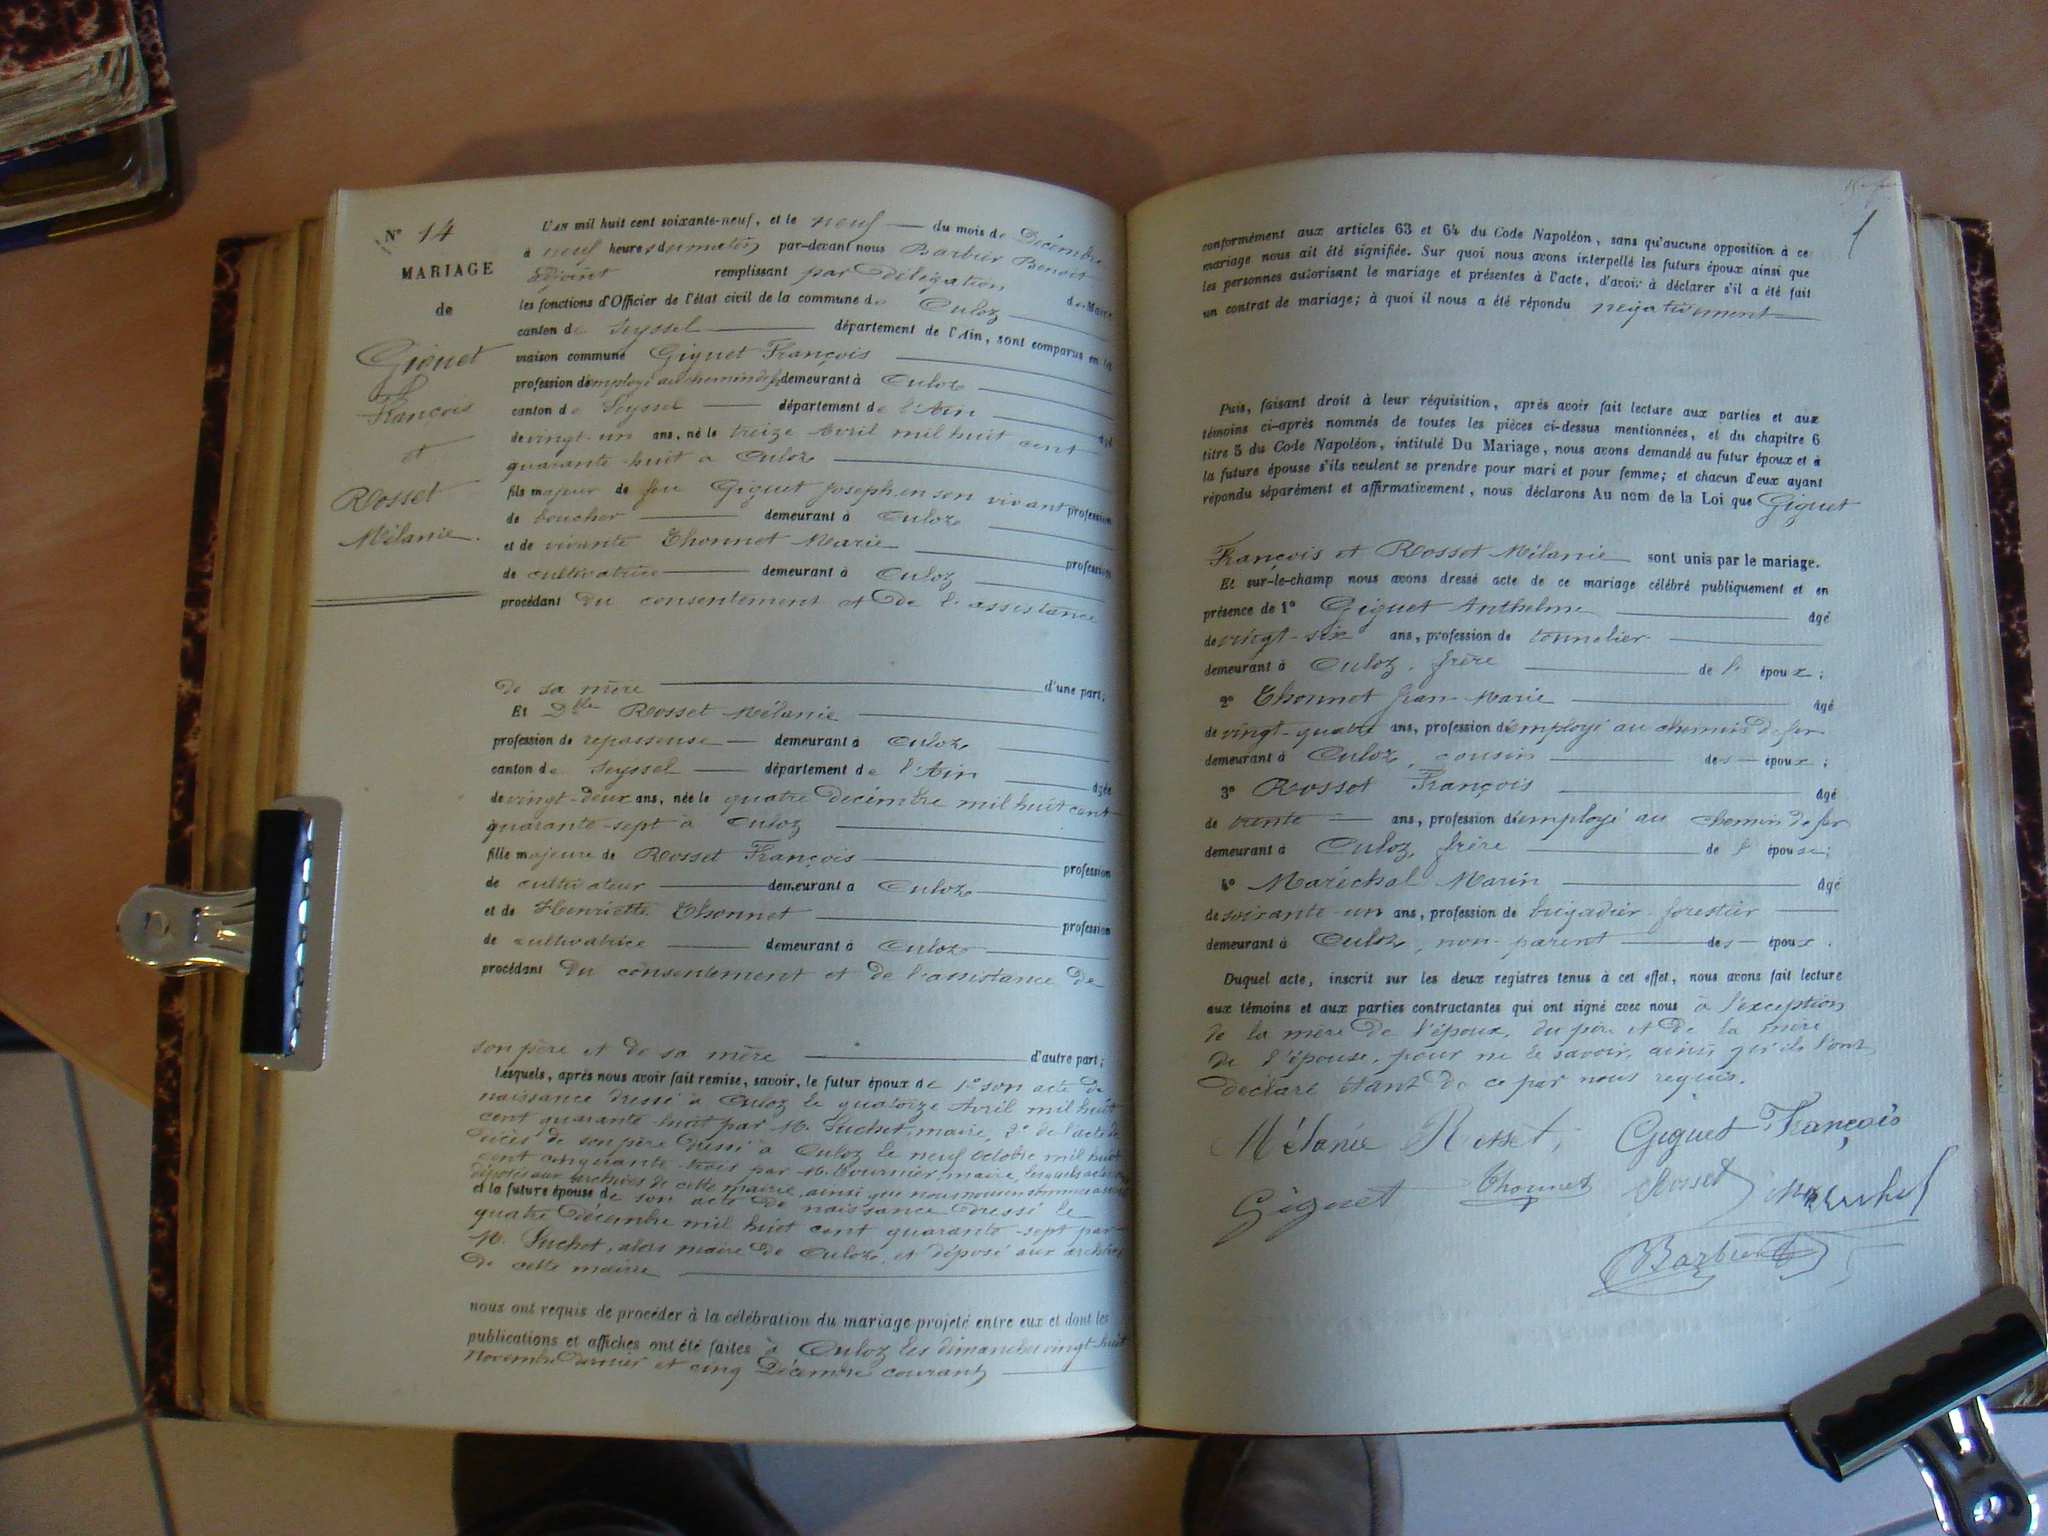 N° 14
MARIAGE
de
Giguet
François
et
Rosset
Mélanie.
L'AN mil huit cent soixante-neuf, et le neuf du mois de Décembre
à neuf heures du matin par-devant nous Barbier Benoit
Adjoint remplissant par délégation de Maire
les fonctions d'Officier de l'état civil de la commune de Culoz
canton de Seyssel département de l'Ain, sont comparus en la
maison commune Giguet François
profession d'employé au chemin de fer demeurant à Culoz
canton de Seyssel département de l'Ain âgé
de vingt-un ans, né le treize Avril mil huit cent
quarante-huit à Culoz
fils majeur de feu Giguet Joseph en son vivant profession
de boucher demeurant à Culoz
et de vivante Thonnet Marie profession
de cultivatrice demeurant à Culoz
procédant du consentement et de l'assistance
de sa mère d'une part;
Et Dlle Rosset Mélanie
profession de repasseuse demeurant à Culoz
canton de Seyssel département de l'Ain âgée
de vingt-deux ans, née le quatre Décembre mil huit cent
quarante-sept à Culoz
fille majeure de Rosset François profession
de cultivateur demeurant à Culoz
et de Henriette Thonnet profession
de cultivatrice demeurant à Culoz
procédant du consentement et de l'assistance de
son père et de sa mère d'autre part;
Lesquels, après nous avoir fait remise, savoir, le futur époux de 1° son acte de
naissance dressé à Culoz le quatorze Avril mil huit
cent quarante-huit par M. Suchet, maire, 2° de l'acte de
décès de son père dressé à Culoz le neuf Octobre mil huit
cent cinquante-trois par M. Fournier, maire, lesquels actes
déposés aux archives de cette mairie, ainsi que nous nous en sommes assuré
et la future épouse de son acte de naissance dressé le
quatre Décembre mil huit cent quarante-sept par
M. Suchet, alors maire de Culoz, et déposé aux archives
de cette mairie
nous ont requis de procéder à la célébration du mariage projeté entre eux et dont les
publications et affiches ont été faites à Culoz les dimanches vingt-huit
Novembre dernier et cinq Décembre courant
1
conformément aux articles 63 et 64 du Code Napoléon, sans qu'aucune opposition à ce
mariage nous ait été signifiée. Sur quoi nous avons interpellé les futurs époux ainsi que
les personnes autorisant le mariage et présentes à l'acte, d'avoir à déclarer s'il a été fait
un contrat de mariage; à quoi il nous a été répondu négativement
Puis, faisant droit à leur réquisition, après avoir fait lecture aux parties et aux
témoins ci-après nommés de toutes les pièces ci-dessus mentionnées, et du chapitre 6
titre 5 du Code Napoléon, intitulé Du Mariage, nous avons demandé au futur époux et à
la future épouse s'ils veulent se prendre pour mari et pour femme; et chacun d'eux ayant
répondu séparément et affirmativement, nous déclarons Au nom de la Loi que Giguet
François et Rosset Mélanie sont unis par le mariage.
Et sur-le-champ nous avons dressé acte de ce mariage célébré publiquement et en
présence de 1° Giguet Anthelme âgé
de vingt-six ans, profession de tonnelier
demeurant à Culoz, frère de l' époux;
2° Thonnet Jean-Marie âgé
de vingt-quatre ans, profession d'employé au chemin de fer
demeurant à Culoz, cousin des époux;
3° Rosset François âgé
de trente ans, profession d'employé au chemin de fer
demeurant à Culoz, frère de l' épouse;
4° Maréchal Marin âgé
de soixante-un ans, profession de brigadier forestier
demeurant à Culoz, non-parent des époux.
Duquel acte, inscrit sur les deux registres tenus à cet effet, nous avons fait lecture
aux témoins et aux parties contractantes qui ont signé avec nous à l'exception
de la mère de l'époux, du père et de la mère
de l'épouse, pour ne le savoir, ainsi qu'ils l'ont
déclaré étant de ce par nous requis.
Mélanie Rosset, Giguet François
Giguet Thonnet Rosset Marechal
Barbier